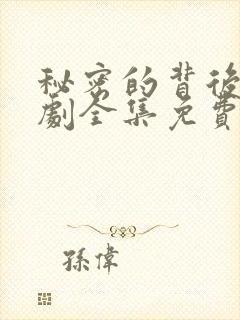 秘密的背後
劇全集免費
孫偉